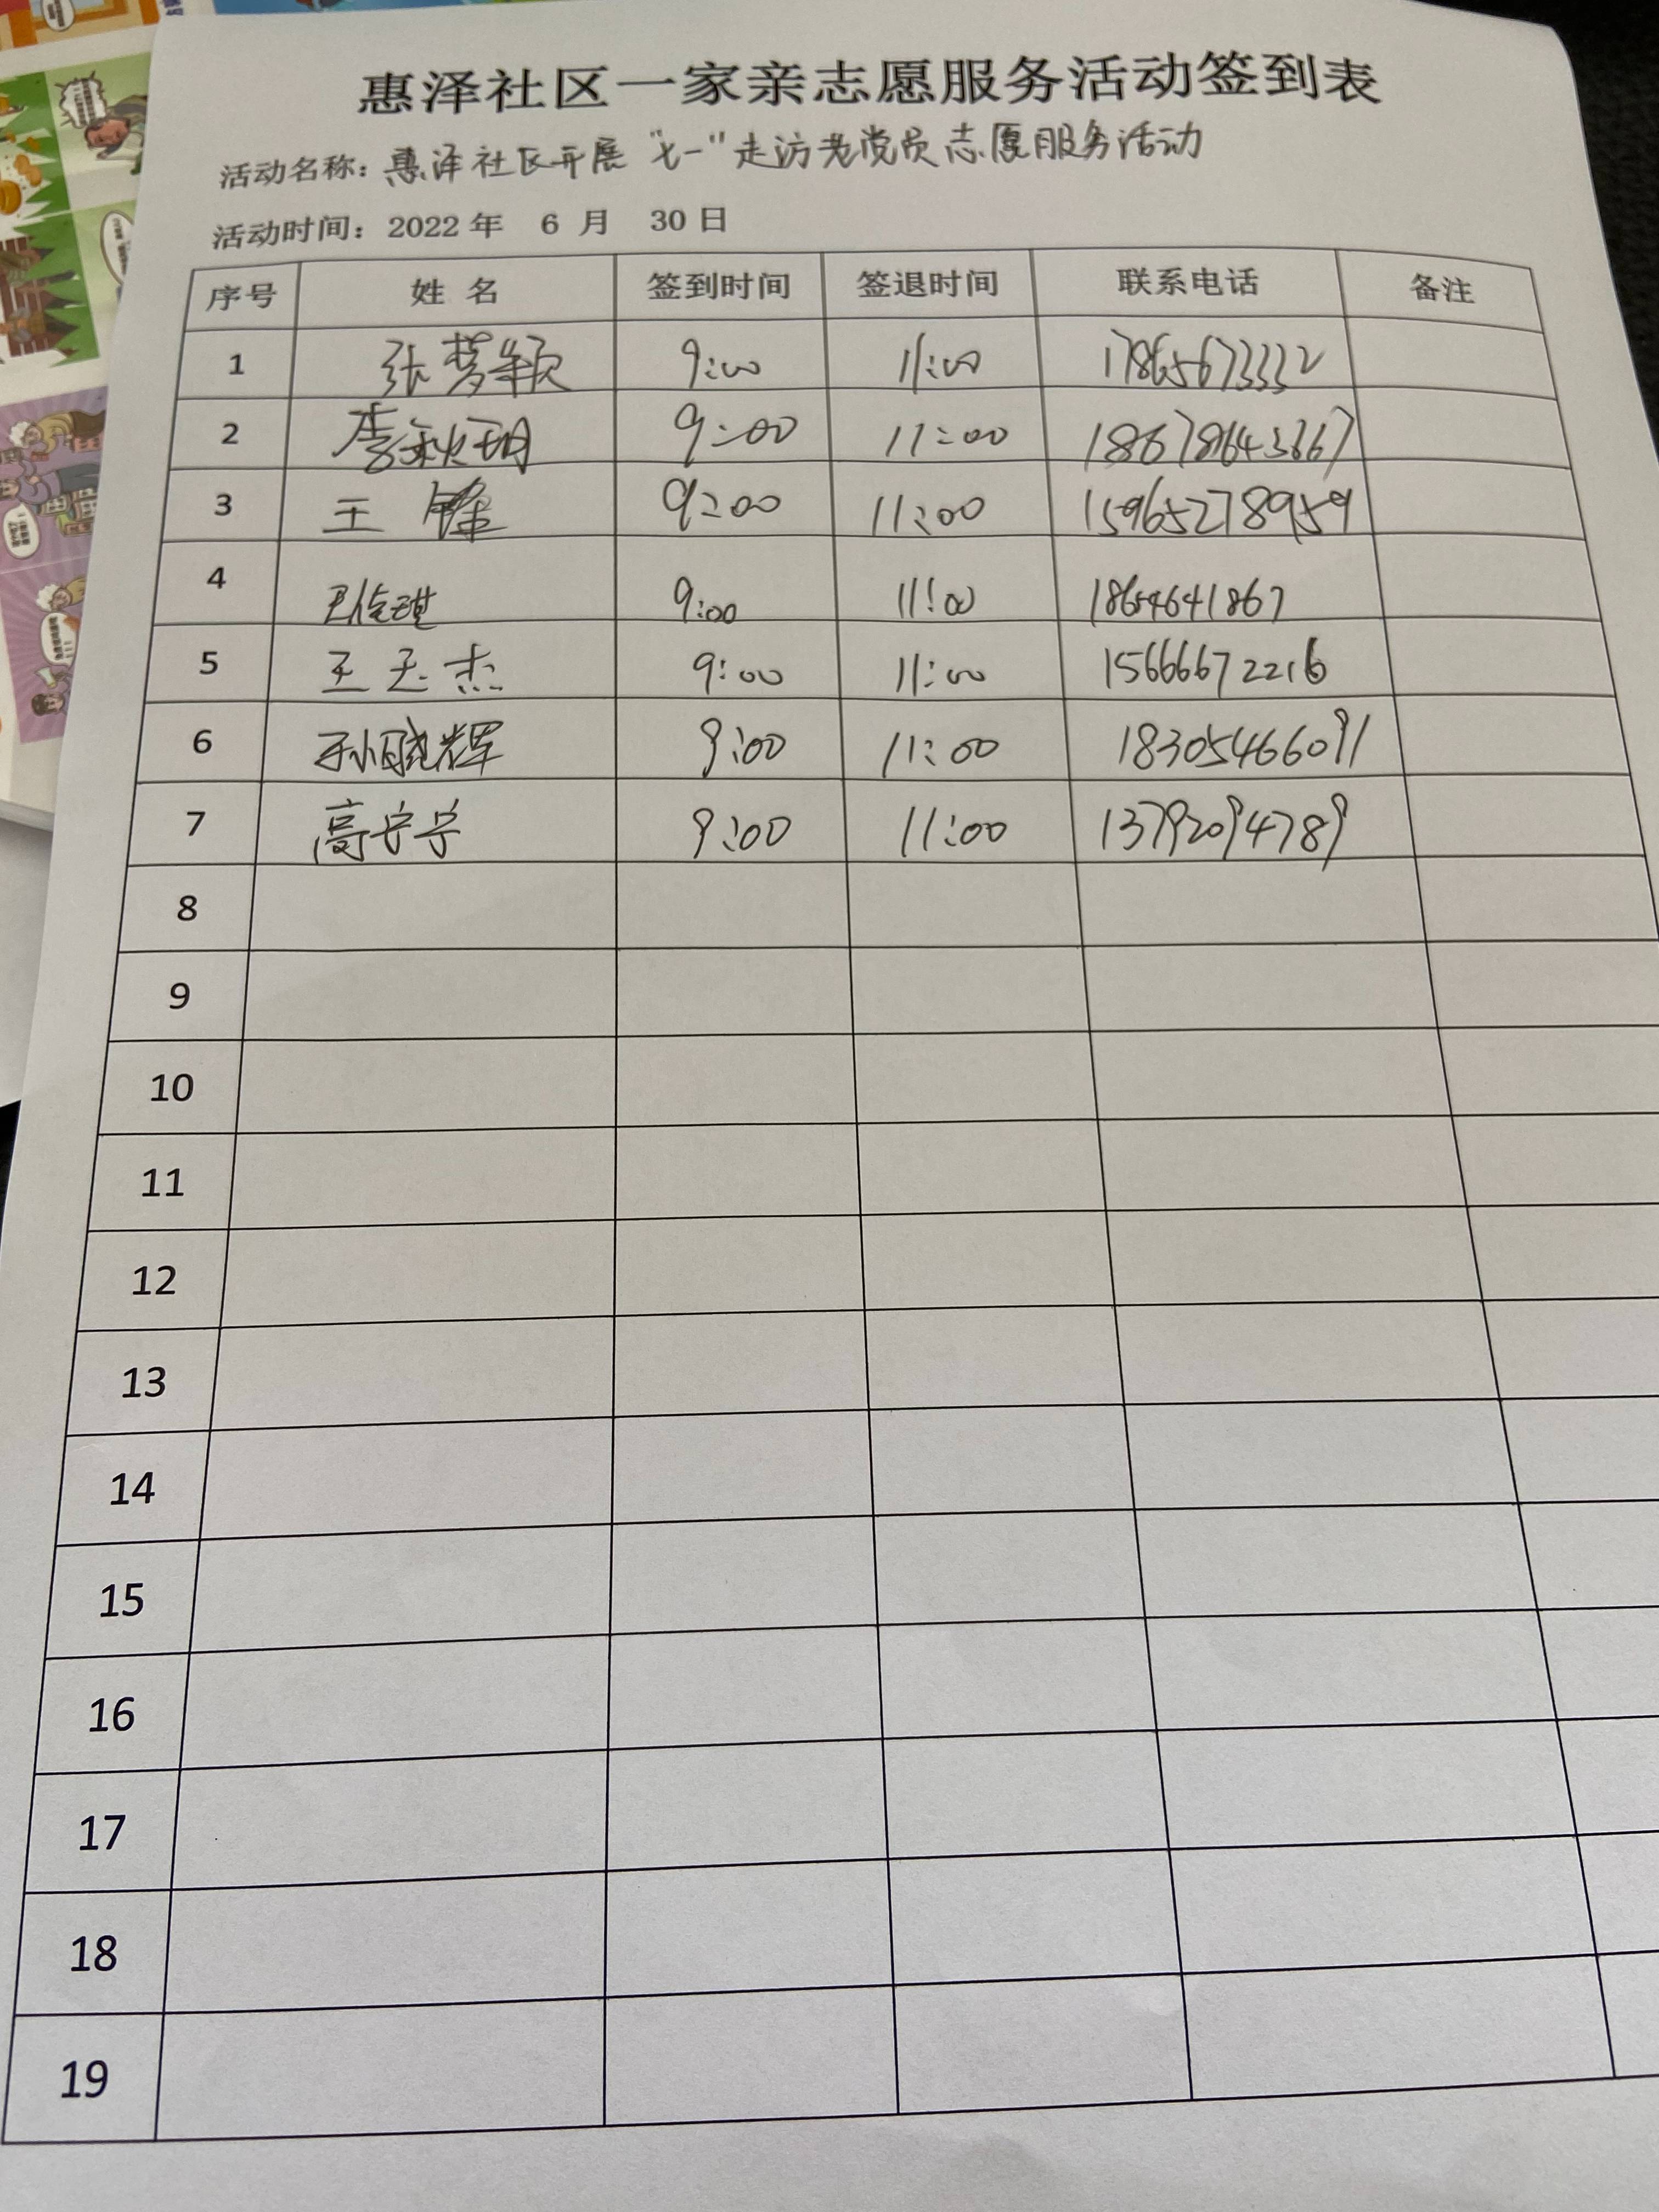 惠泽社区一家亲志愿服务活动签到表
活动名称：惠泽社区开展“七一”走访老党员志愿服务活动
活动时间：2022年 6 月 30日
序号 姓 名 签到时间 签退时间 联系电话 备注
1 张梦颖 9:00 11:00 17865673332
2 李秋玥 9:00 11:00
3 王 锋 9:00 11:00 15965278959
4 9:00 11:00 18654641867
5 王玉杰 9:00 11:00 15666672216
6 孙晓辉 9:00 11:00 18305466091
7 高宁宁 9:00 11:00 13792094789
8
9
10
11
12
13
14
15
16
17
18
19